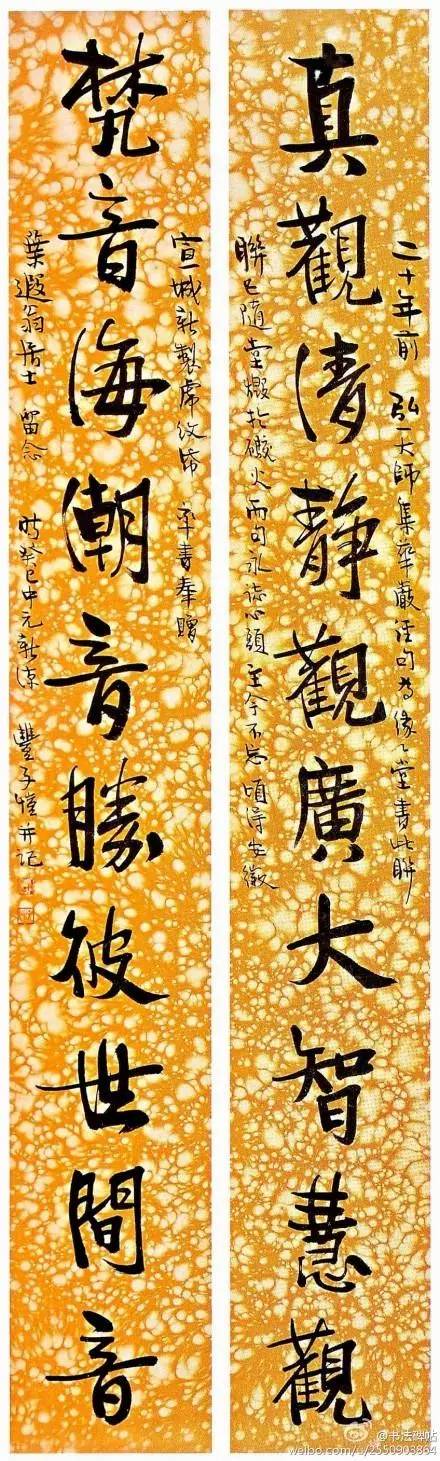 真觀清靜觀廣大智慧觀
二十年前 弘一大師集華嚴經句為緣緣堂書此聯
聯已隨堂燬於礮火而句永誌心頭至今不忘頃得安徽
梵音海潮音勝彼世間音
宣城新製虎紋牋 率書奉贈
葉遐翁居士 留念 時癸巳中元新涼 豐子愷并記
@书法碑帖
weibo.com/u/2550903864